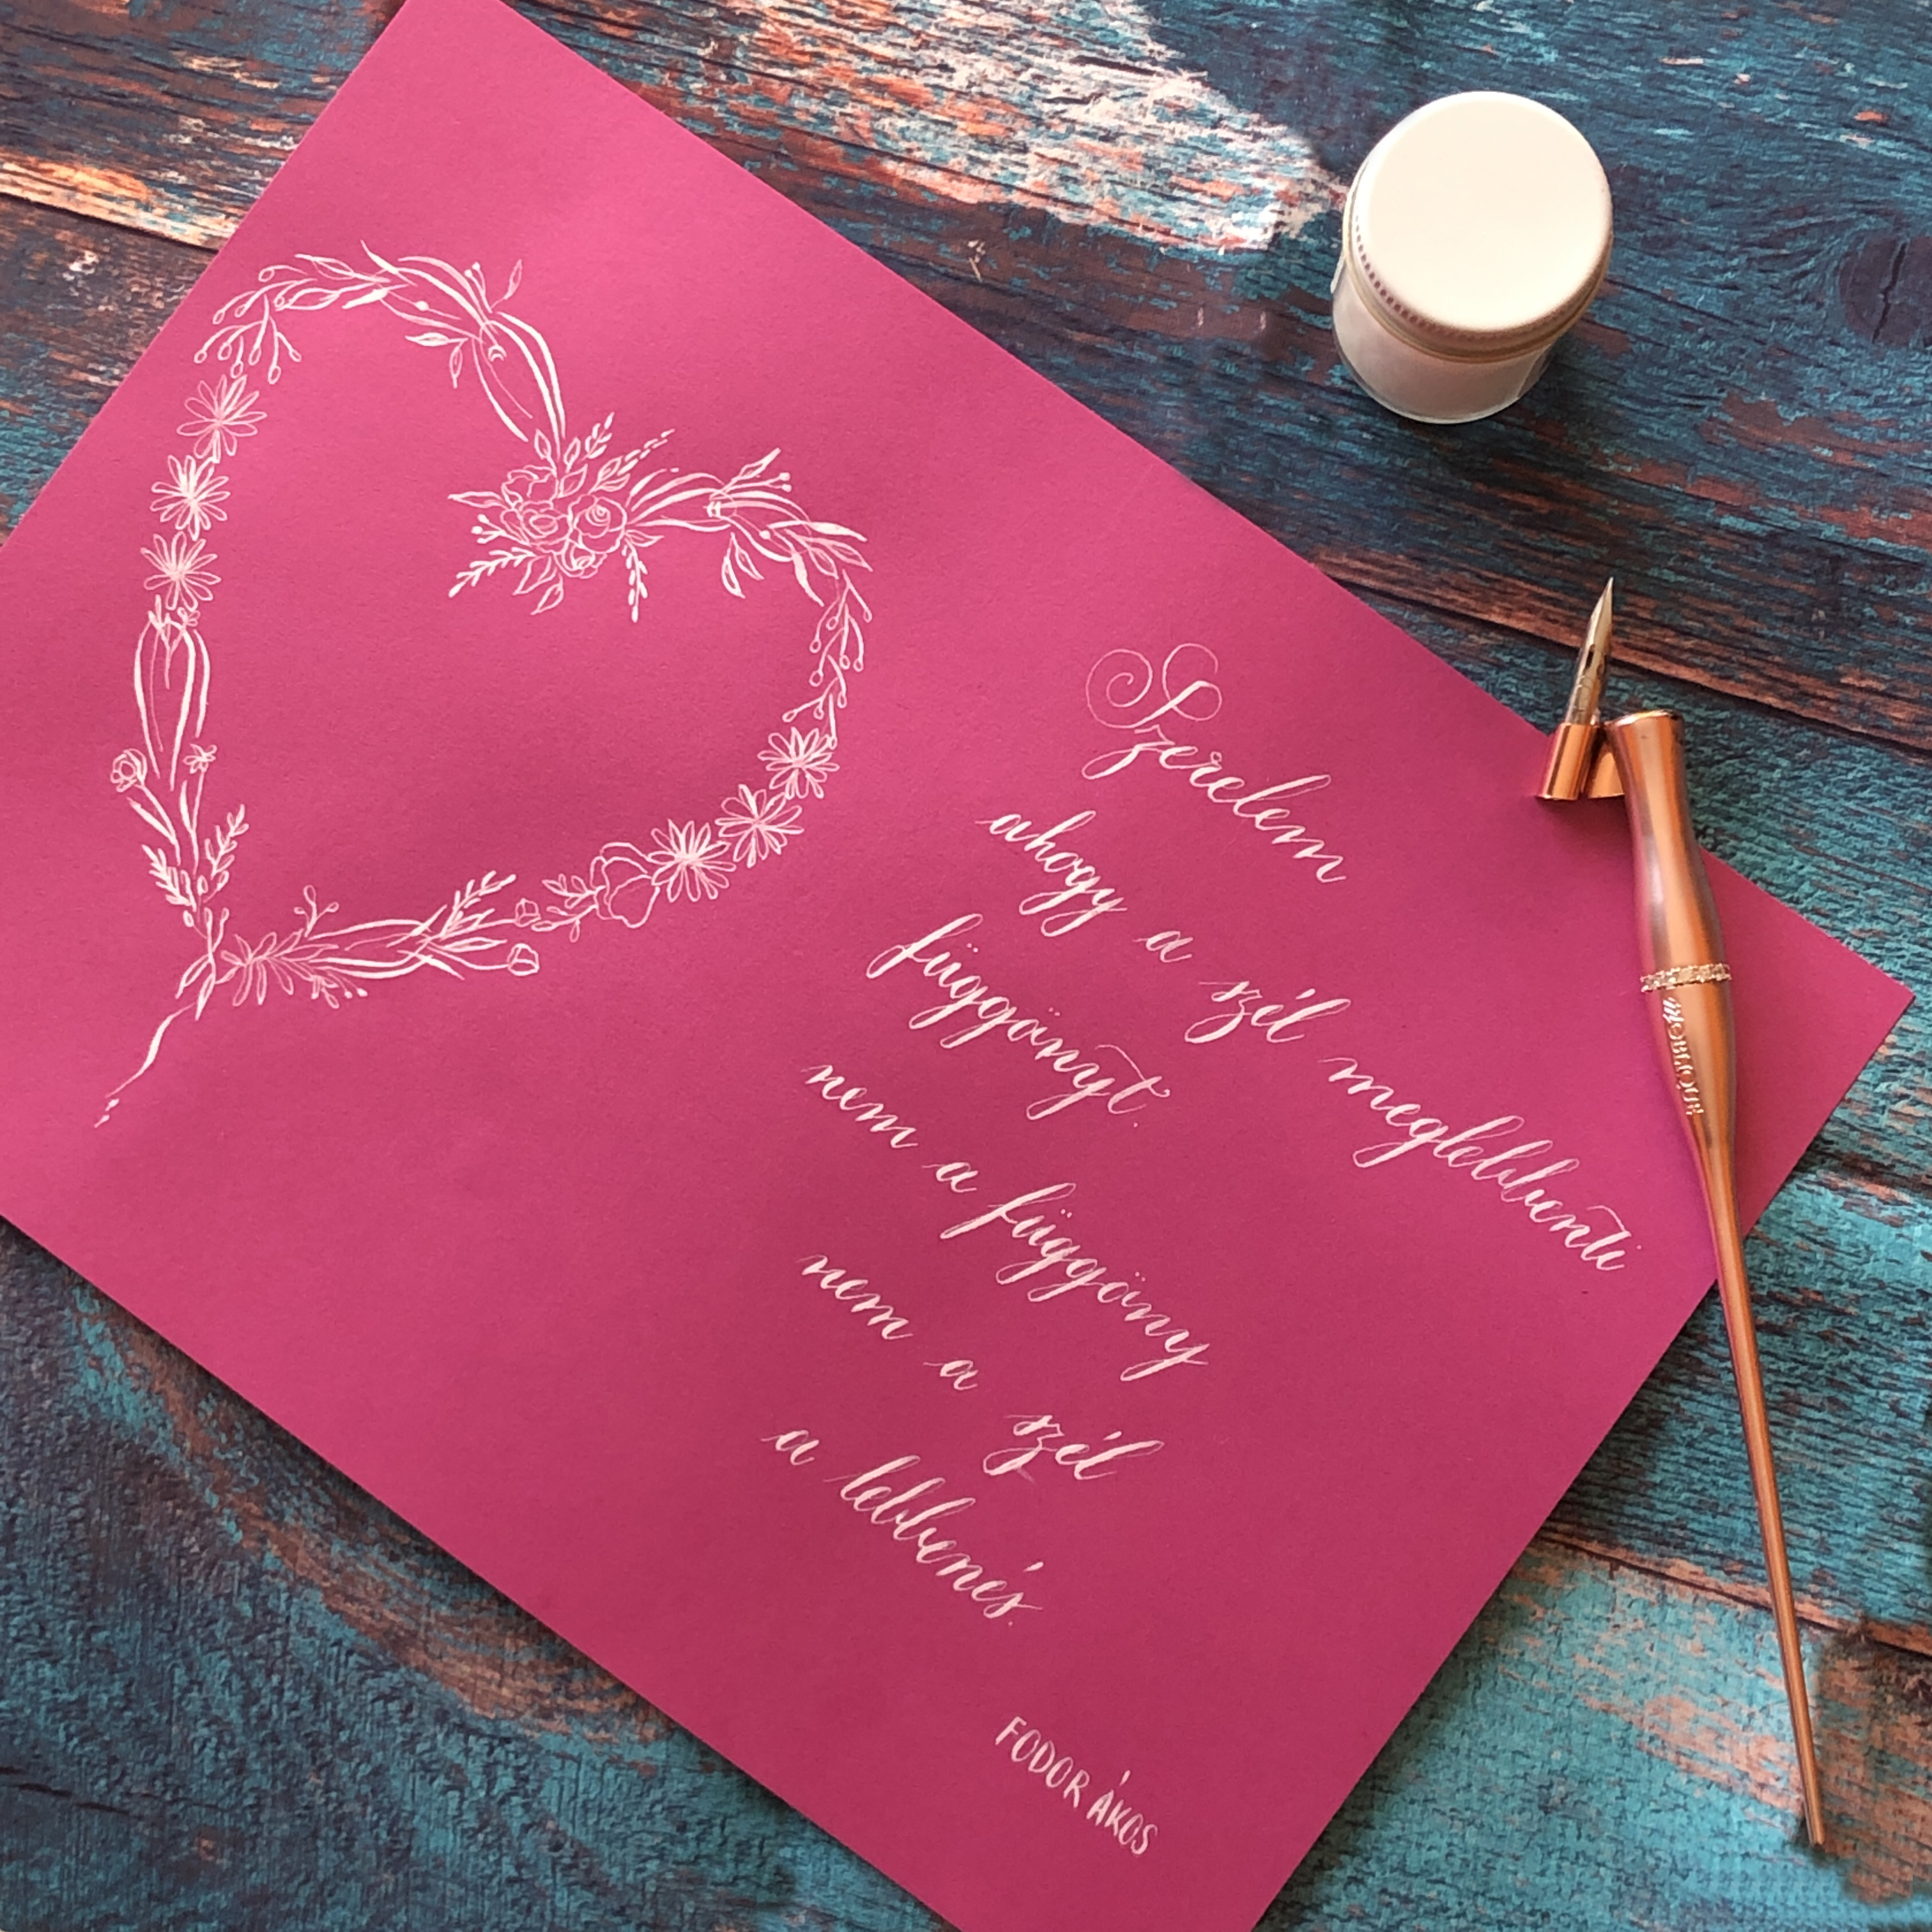 Szerelem
ahogy a szél meglebbenti
függönyt.
nem a függöny
nem a szél
a lebbenés.
FODOR ÁKOS